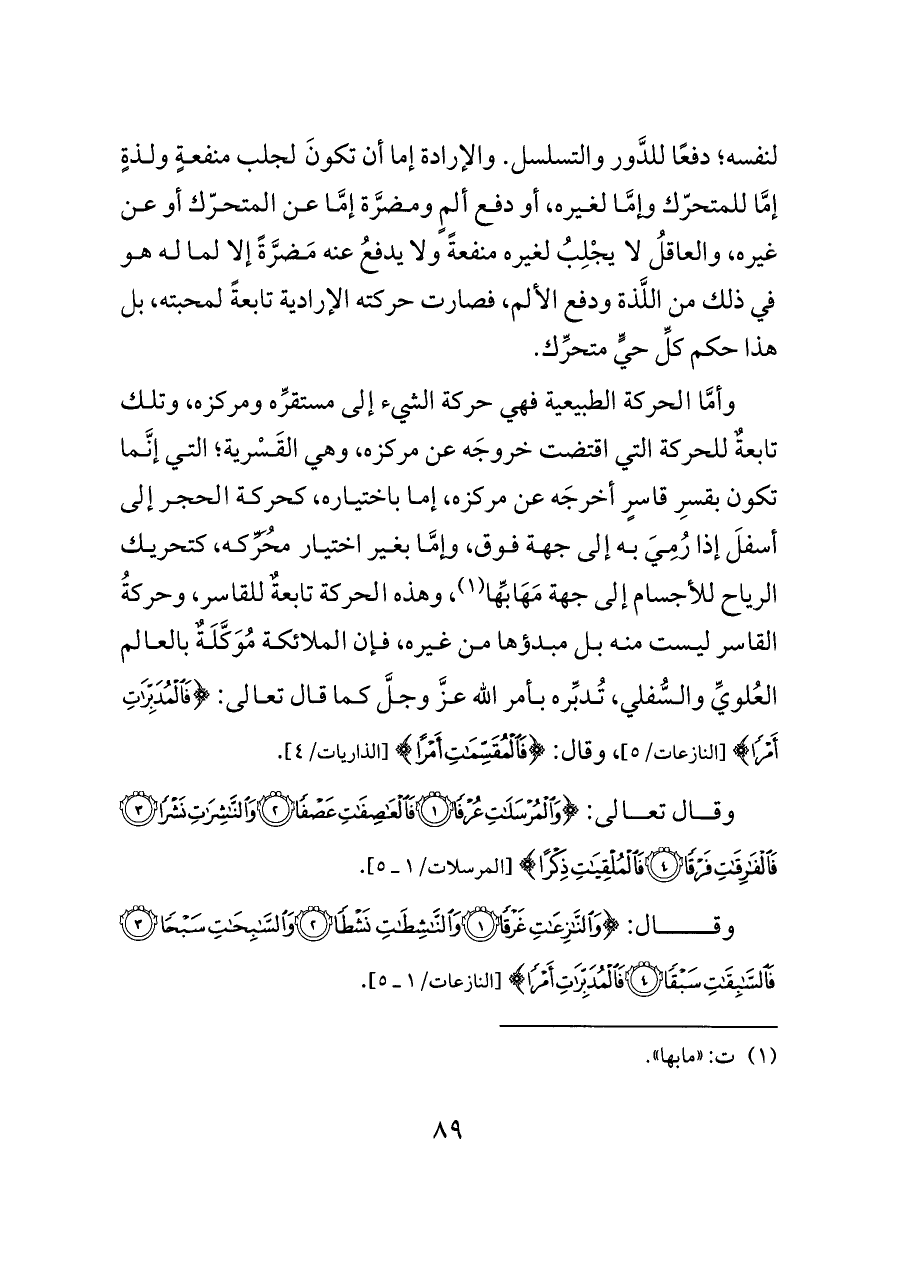 لنفسه؛ دفعًا للدَّور والتسلسل. والإرادة إما أن تكونَ لجلب منفعةٍ ولذةٍ
إمَّا للمتحرّك وإمَّا لغيره، أو دفع ألمٍ ومضرَّة إمَّا عن المتحرّك أو عن
غيره، والعاقلُ لا يجْلِبُ لغيره منفعةً ولا يدفعُ عنه مَضرَّةً إلا لما له هو
في ذلك من اللَّذة ودفع الألم، فصارت حركته الإرادية تابعةً لمحبته، بل
هذا حكم كلِّ حيٍّ متحرِّك.
وأمَّا الحركة الطبيعية فهي حركة الشيء إلى مستقرِّه ومركزه، وتلك
تابعةٌ للحركة التي اقتضت خروجَه عن مركزه، وهي القَسْرية؛ التي إنَّما
تكون بقسرِ قاسرٍ أخرجَه عن مركزه، إما باختياره، كحركة الحجر إلى
أسفلَ إذا رُمِيَ به إلى جهة فوق، وإمَّا بغير اختيار محُرِّكه، كتحريك
الرياح للأجسام إلى جهة مَهَابِّها(١)، وهذه الحركة تابعةٌ للقاسر، وحركةُ
القاسر ليست منه بل مبدؤها من غيره، فإن الملائكة مُوَكَّلَةٌ بالعالم
العُلويِّ والسُّفلي، تُدبِّره بأمر الله عزَّ وجلَّ كما قال تعالى: ﴿فَٱلْمُدَبِّرَٰتِ
أَمْرًا﴾ [النازعات/ ٥]، وقال: ﴿فَٱلْمُقَسِّمَٰتِ أَمْرًا﴾ [الذاريات/ ٤].
وقال تعالى: ﴿وَٱلْمُرْسَلَٰتِ عُرْفًا ١ فَٱلْعَٰصِفَٰتِ عَصْفًا ٢ وَٱلنَّٰشِرَٰتِ نَشْرًا ٣
فَٱلْفَٰرِقَٰتِ فَرْقًا ٤ فَٱلْمُلْقِيَٰتِ ذِكْرًا﴾ [المرسلات/ ١ ـ ٥].
وقال: ﴿وَٱلنَّٰزِعَٰتِ غَرْقًا ١ وَٱلنَّٰشِطَٰتِ نَشْطًا ٢ وَٱلسَّٰبِحَٰتِ سَبْحًا ٣
فَٱلسَّٰبِقَٰتِ سَبْقًا ٤ فَٱلْمُدَبِّرَٰتِ أَمْرًا﴾ [النازعات/ ١ ـ ٥].
(١) ت: «مابها».
٨٩